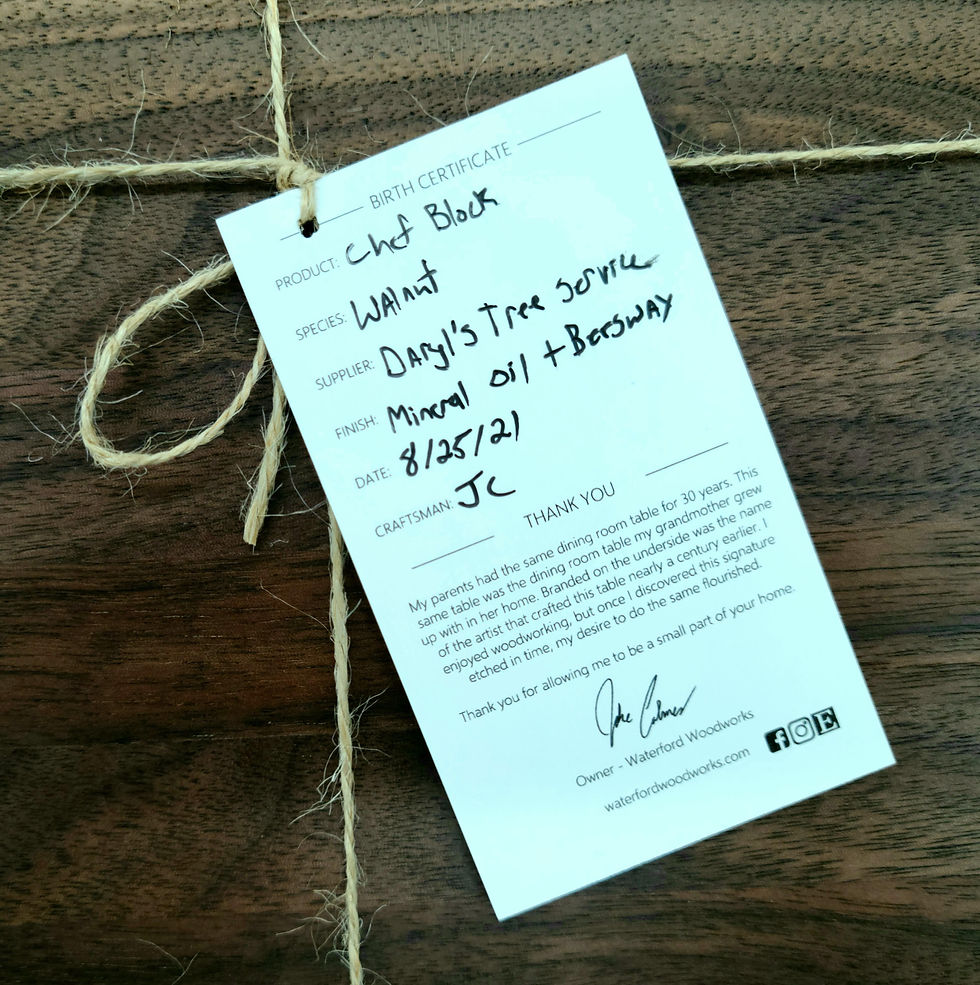 BIRTH CERTIFICATE
PRODUCT: Chef Block
SPECIES: Walnut
SUPPLIER: Daryl's Tree Service
FINISH: Mineral Oil + Beesway
DATE: 8/25/21
CRAFTSMAN: JC
THANK YOU
My parents had the same dining room table for 30 years. This
same table was the dining room table my grandmother grew
up with in her home. Branded on the underside was the name
of the artist that crafted this table nearly a century earlier. I
enjoyed woodworking, but once I discovered this signature
etched in time, my desire to do the same flourished.
Thank you for allowing me to be a small part of your home.
Owner - Waterford Woodworks
waterfordwoodworks.com